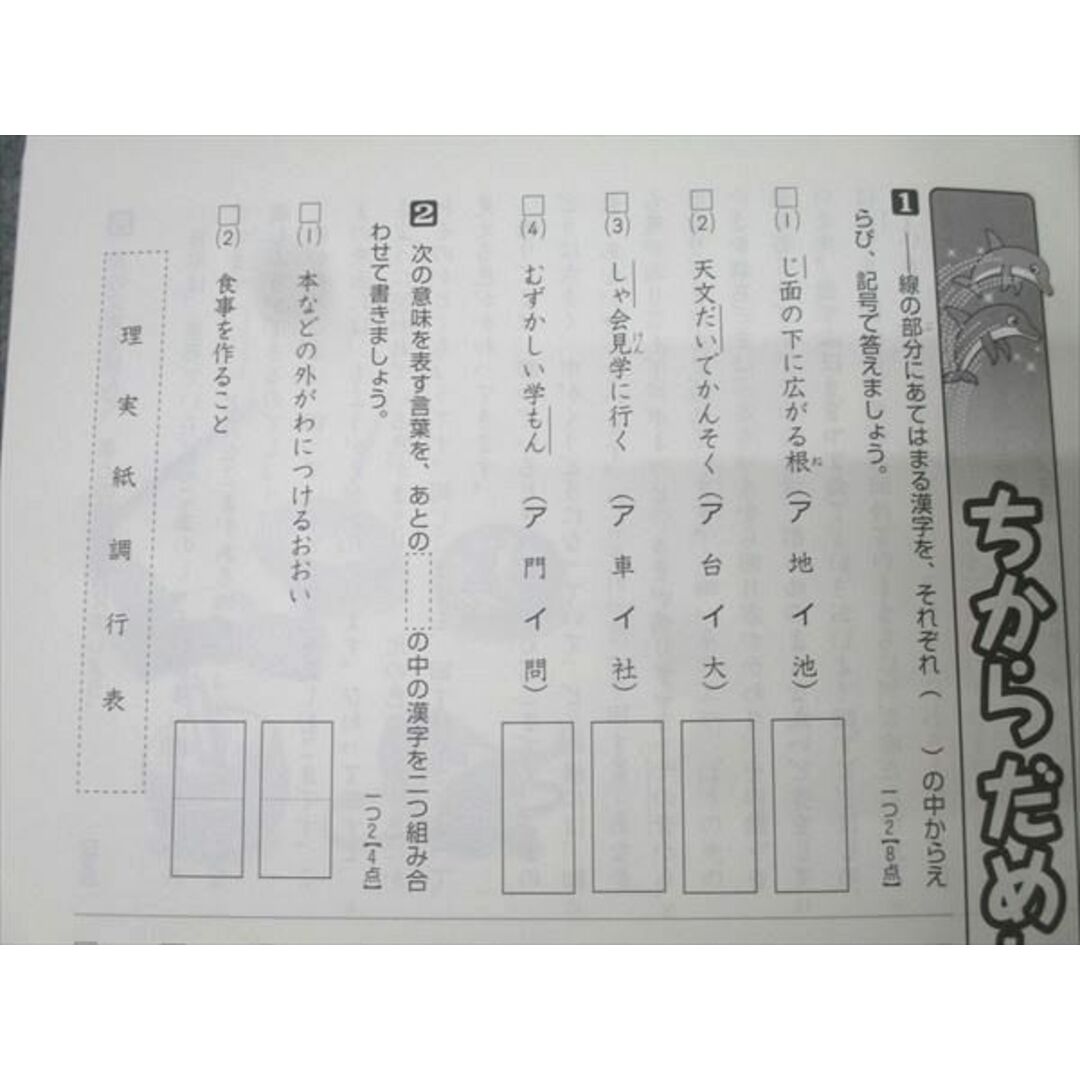 ちからだめ
1 ――線の部分にあてはまる漢字を、それぞれ（　）の中からえ
らび、記号で答えましょう。
一つ2【8点】
□(1) じ面の下に広がる根（ア 地 イ 池）
□(2) 天文だいでかんそく（ア 台 イ 大）
□(3) しゃ会見学に行く（ア 車 イ 社）
□(4) むずかしい学もん（ア 門 イ 問）
2 次の意味を表す言葉を、あとの の中の漢字を二つ組み合
わせて書きましょう。
一つ2【4点】
□(1) 本などの外がわにつけるおおい
□(2) 食事を作ること
理 実 紙 調 行 表